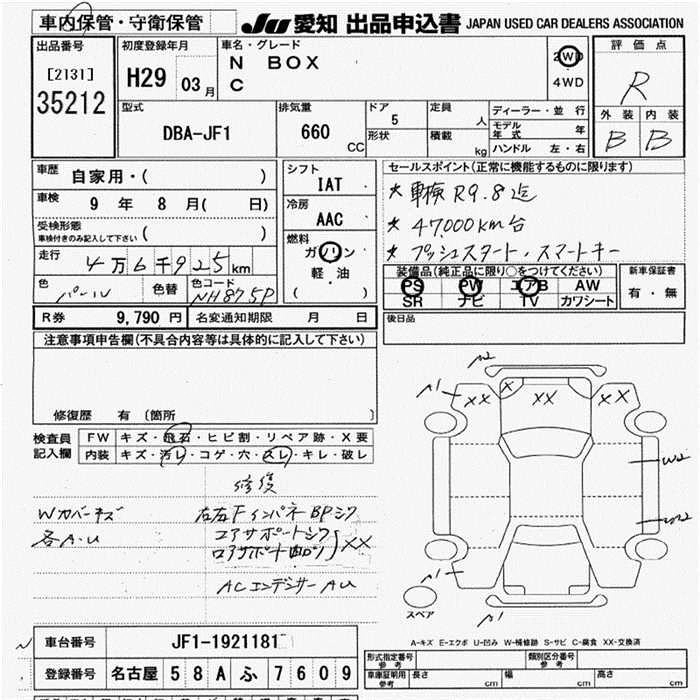 車内保管・守衛保管
JU 愛知 出品申込書 JAPAN USED CAR DEALERS ASSOCIATION
出品番号
[2131]
35212
初度登録年月
H29 03月
車名・グレード
N BOX
C
2WD
4WD
評価点
R
外装 内装
B B
型式
DBA-JF1
排気量
660 CC
ドア
5
形状
定員
人
積載
kg
ディーラー・並行
モデル年式 年
ハンドル 左・右
車歴
自家用・( )
車検
9 年 8 月( 日)
受検形態
車検付きのみ記入して下さい ( )
走行
4万6千925km
色
パール
色替
色コード
NH875P
シフト
IAT
冷房
AAC
燃料
ガソリン
軽・油
( )
セールスポイント(正常に機能するものに限ります)
* 車検 R9.8迄
* 47,000km台
* プッシュスタート・スマートキー
装備品(純正品に限り○をつけてください)
PS PW エアB AW
SR ナビ TV カワシート
新車保証書
有・無
R券 9,790 円
名変通知期限 月 日
後日品
注意事項申告欄(不具合内容等は具体的に記入して下さい)
修復歴 有 〔箇所 〕
検査員記入欄
FW キズ・飛石・ヒビ割・リペア跡・X要
内装 キズ・汚レ・コゲ・穴・スレ・キレ・破レ
修復
Wカバーキズ
各A・U
左右Fインパネ BPシワ
コアサポートシワ
ロアサポート曲り XX
ACコンデンサーAU
A2
A1
XX
X
XX
XX
W2
A1
A1
スペア
A-キズ E-エクボ U-凹み W-補修跡 S-サビ C-腐食 XX-交換済
車台番号 JF1-1921181
登録番号 名古屋 58A ふ 7609
形式指定番号 参考
類別区分番号 参考
車庫証明用 参考
長さ cm 幅 cm 高さ cm